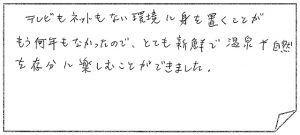 テレビもネットもない環境に身を置くことが
もう何年もなかったので、とても新鮮で温泉や自然
を存分に楽しむことができました。